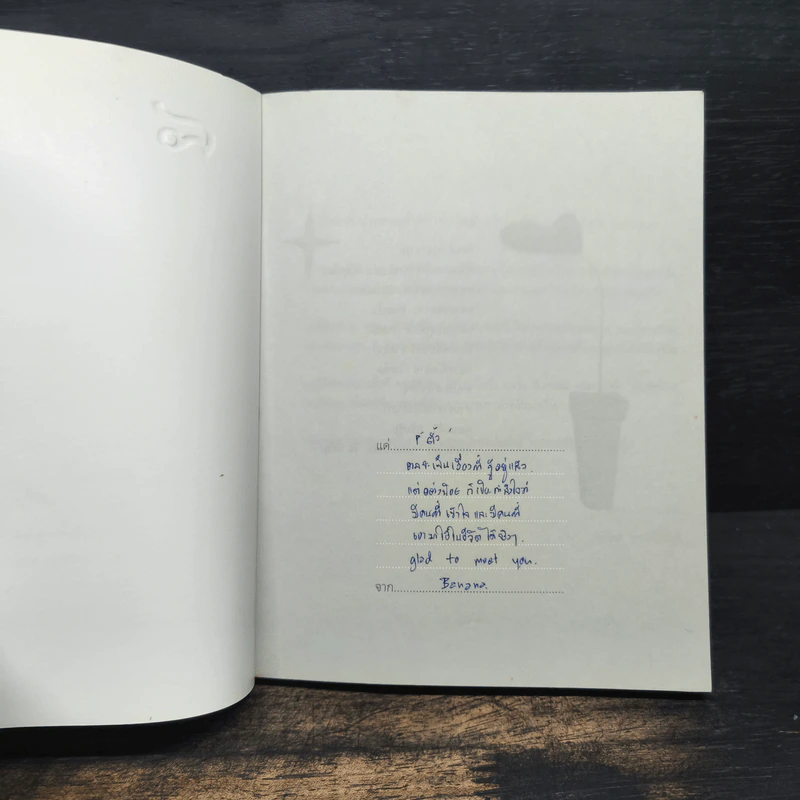 แด่ พี่ ติ๊ก
อาจจะเป็นเรื่องที่ รู้อยู่แล้ว.
แต่อย่างน้อย ก็เป็นกำลังใจที่
มีคนที่ เข้าใจ และ มีคนที่
เอามาใช้ในชีวิต ได้จริงๆ.
glad to meet you.
จาก Banana.